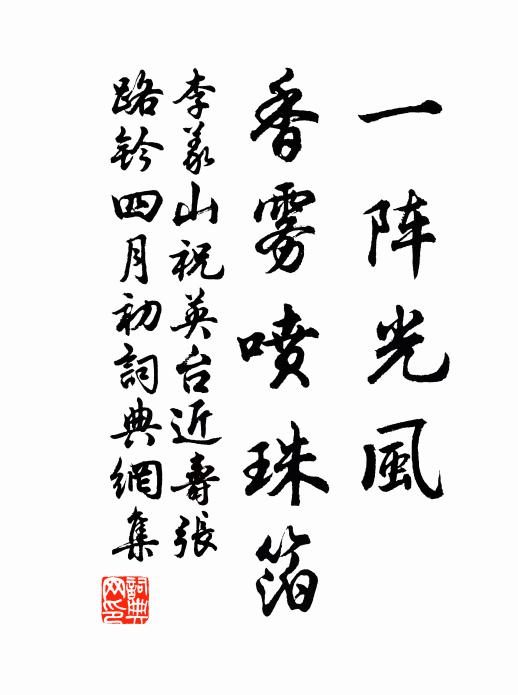 一阵光風
香雾噴珠箔
李義山祝英台近壽張
路鈐四月初詞典網集
詞典网印